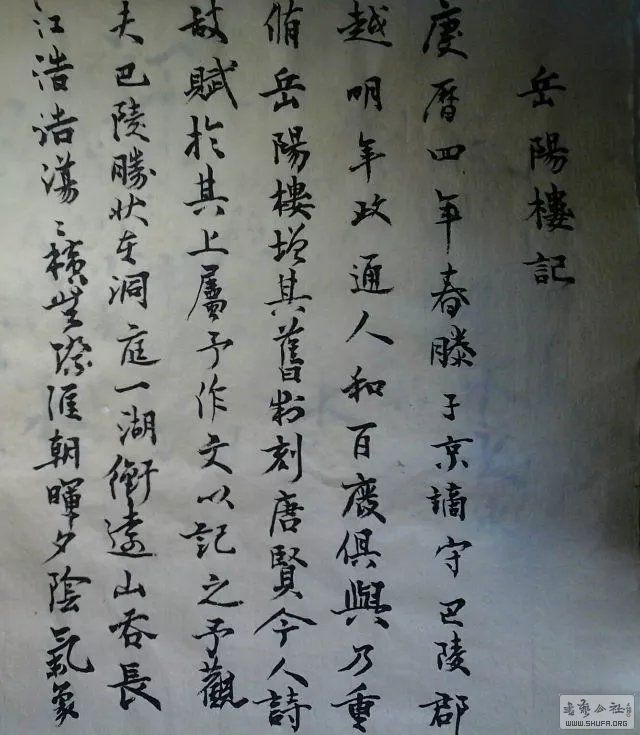 岳陽樓記
慶曆四年春滕子京謫守巴陵郡
越明年政通人和百廢俱興乃重
脩岳陽樓增其舊制刻唐賢今人詩
賦於其上屬予作文以記之予觀
夫巴陵勝狀在洞庭一湖銜遠山吞長
江浩浩蕩〻橫無際涯朝暉夕陰氣象
書藝公社
WWW.SHUFA.ORG